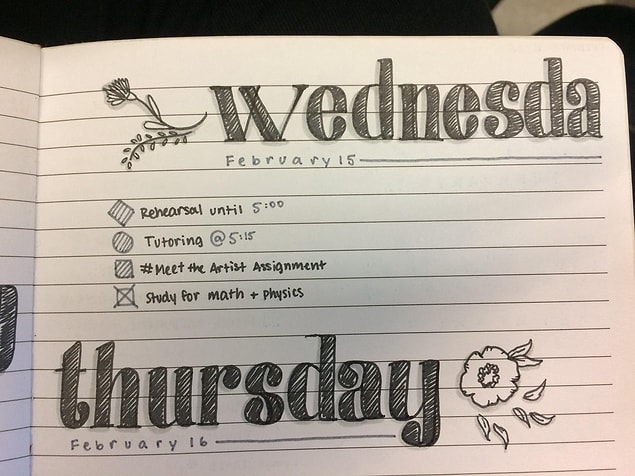 wednesda
February 15
Rehearsal until 5:00
Tutoring @ 5:15
#Meet the Artist Assignment
Study for math + physics
thursday
February 16